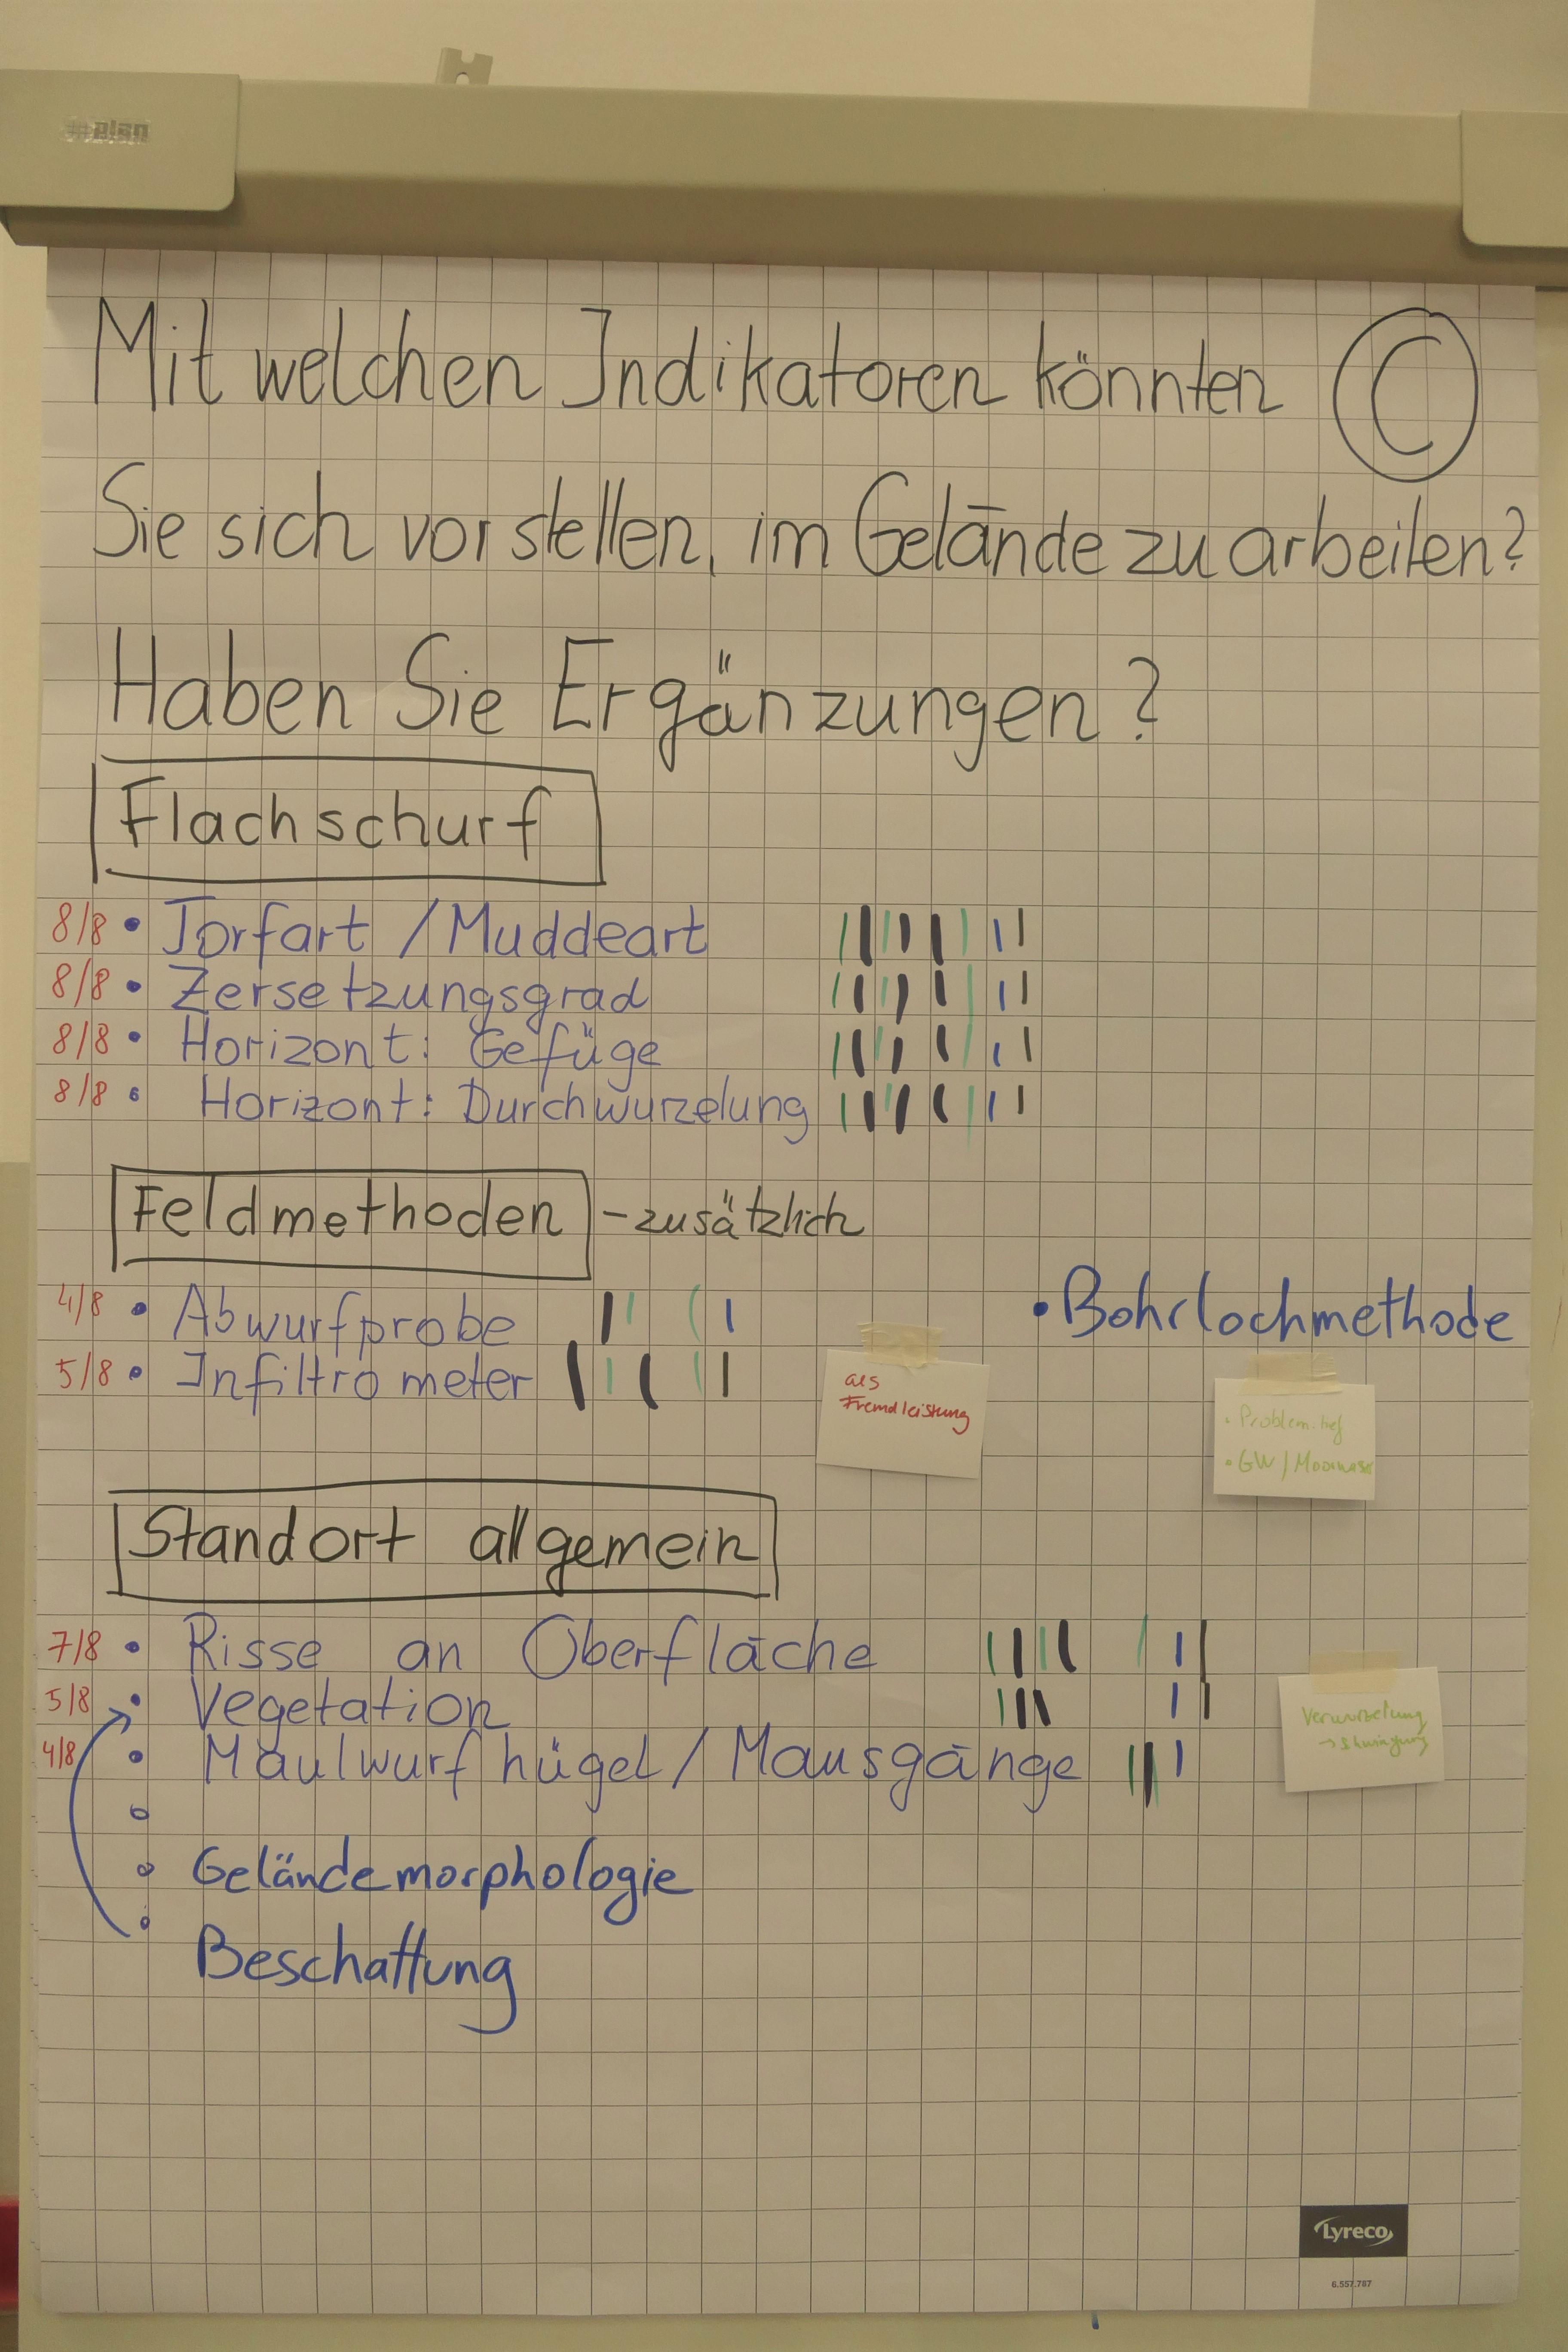 Mit welchen Indikatoren könnten
C
Sie sich vorstellen, im Gelände zu arbeiten?
Haben Sie Ergänzungen?
Flachschurf
8/8 • Torfart / Muddeart
8/8 • Zersetzungsgrad
8/8 • Horizont: Gefüge
8/8 • Horizont: Durchwurzelung
Feldmethoden - zusätzlich
4/8 • Abwurfprobe
• Bohrlochmethode
5/8 • Infiltrometer
als
Fremdleistung
• Problem: tief
• GW / Moorwasser
Standort allgemein
7/8 • Risse an Oberfläche
5/8 • Vegetation
4/8 • Maulwurfhügel / Mausgänge
Verwurzelung
→ Schwingung
Geländemorphologie
Beschattung
Lyreco
6.557.787